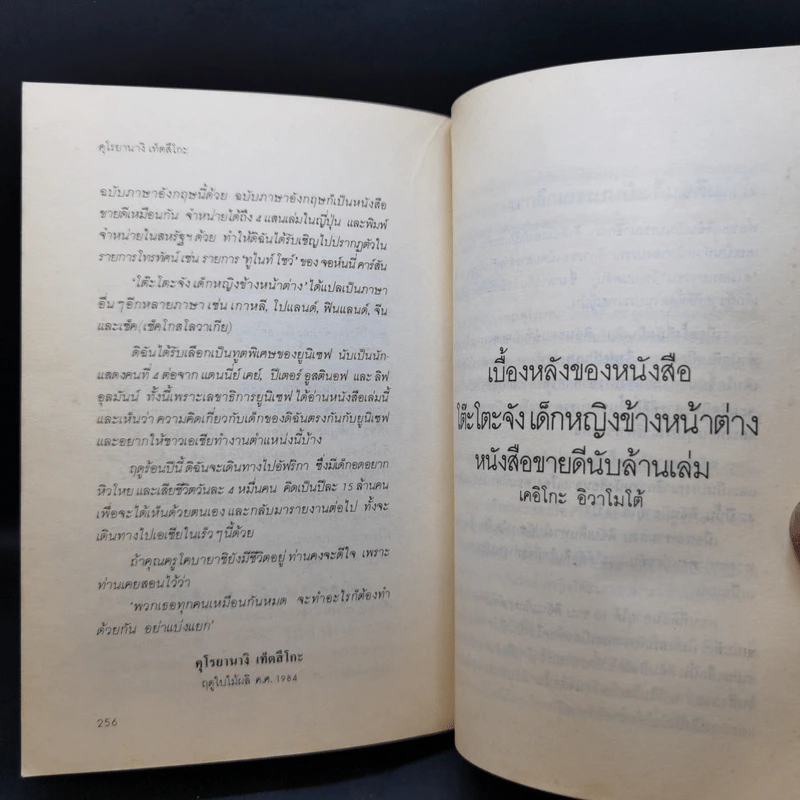 คุโรยานางิ เท็ตสึโกะ
ฉบับภาษาอังกฤษนี้ด้วย ฉบับภาษาอังกฤษก็เป็นหนังสือ
ขายดีเหมือนกัน จำหน่ายได้ถึง 4 แสนเล่มในญี่ปุ่น และพิมพ์
จำหน่ายในสหรัฐฯ ด้วย ทำให้ดิฉันได้รับเชิญไปปรากฏตัวใน
รายการโทรทัศน์ เช่น รายการ 'ทูไนท์ โชว์' ของ จอห์นนี่ คาร์สัน
'โต๊ะโตะจัง เด็กหญิงข้างหน้าต่าง' ได้แปลเป็นภาษา
อื่น ๆ อีกหลายภาษา เช่น เกาหลี, โปแลนด์, ฟินแลนด์, จีน
และเช็ค (เช็คโกสโลวาเกีย)
ดิฉันได้รับเลือกเป็นทูตพิเศษของยูนิเซฟ นับเป็นนัก-
แสดงคนที่ 4 ต่อจาก แดนนี่ย์ เคย์, ปีเตอร์ อูสตินอฟ และ ลิฟ
อุลมันน์ ทั้งนี้เพราะเลขาธิการยูนิเซฟ ได้อ่านหนังสือเล่มนี้
และเห็นว่า ความคิดเกี่ยวกับเด็กของดิฉันตรงกันกับยูนิเซฟ
และอยากให้ชาวเอเซียทำงานตำแหน่งนี้บ้าง
ฤดูร้อนปีนี้ ดิฉันจะเดินทางไปอัฟริกา ซึ่งมีเด็กอดอยาก
หิวโหย และเสียชีวิตวันละ 4 หมื่นคน คิดเป็นปีละ 15 ล้านคน
เพื่อจะได้เห็นด้วยตนเอง และกลับมารายงานต่อไป ทั้งจะ
เดินทางไปเอเชียในเร็ว ๆ นี้ด้วย
ถ้าคุณครูโคบายาชิยังมีชีวิตอยู่ ท่านคงจะดีใจ เพราะ
ท่านเคยสอนไว้ว่า
'พวกเธอทุกคนเหมือนกันหมด จะทำอะไรก็ต้องทำ
ด้วยกัน อย่าแบ่งแยก'
คุโรยานางิ เท็ตสึโกะ
ฤดูใบไม้ผลิ ค.ศ. 1984
256
เบื้องหลังของหนังสือ
โต๊ะโตะจัง เด็กหญิงข้างหน้าต่าง
หนังสือขายดีนับล้านเล่ม
เคอิโกะ อิวาโมโต้